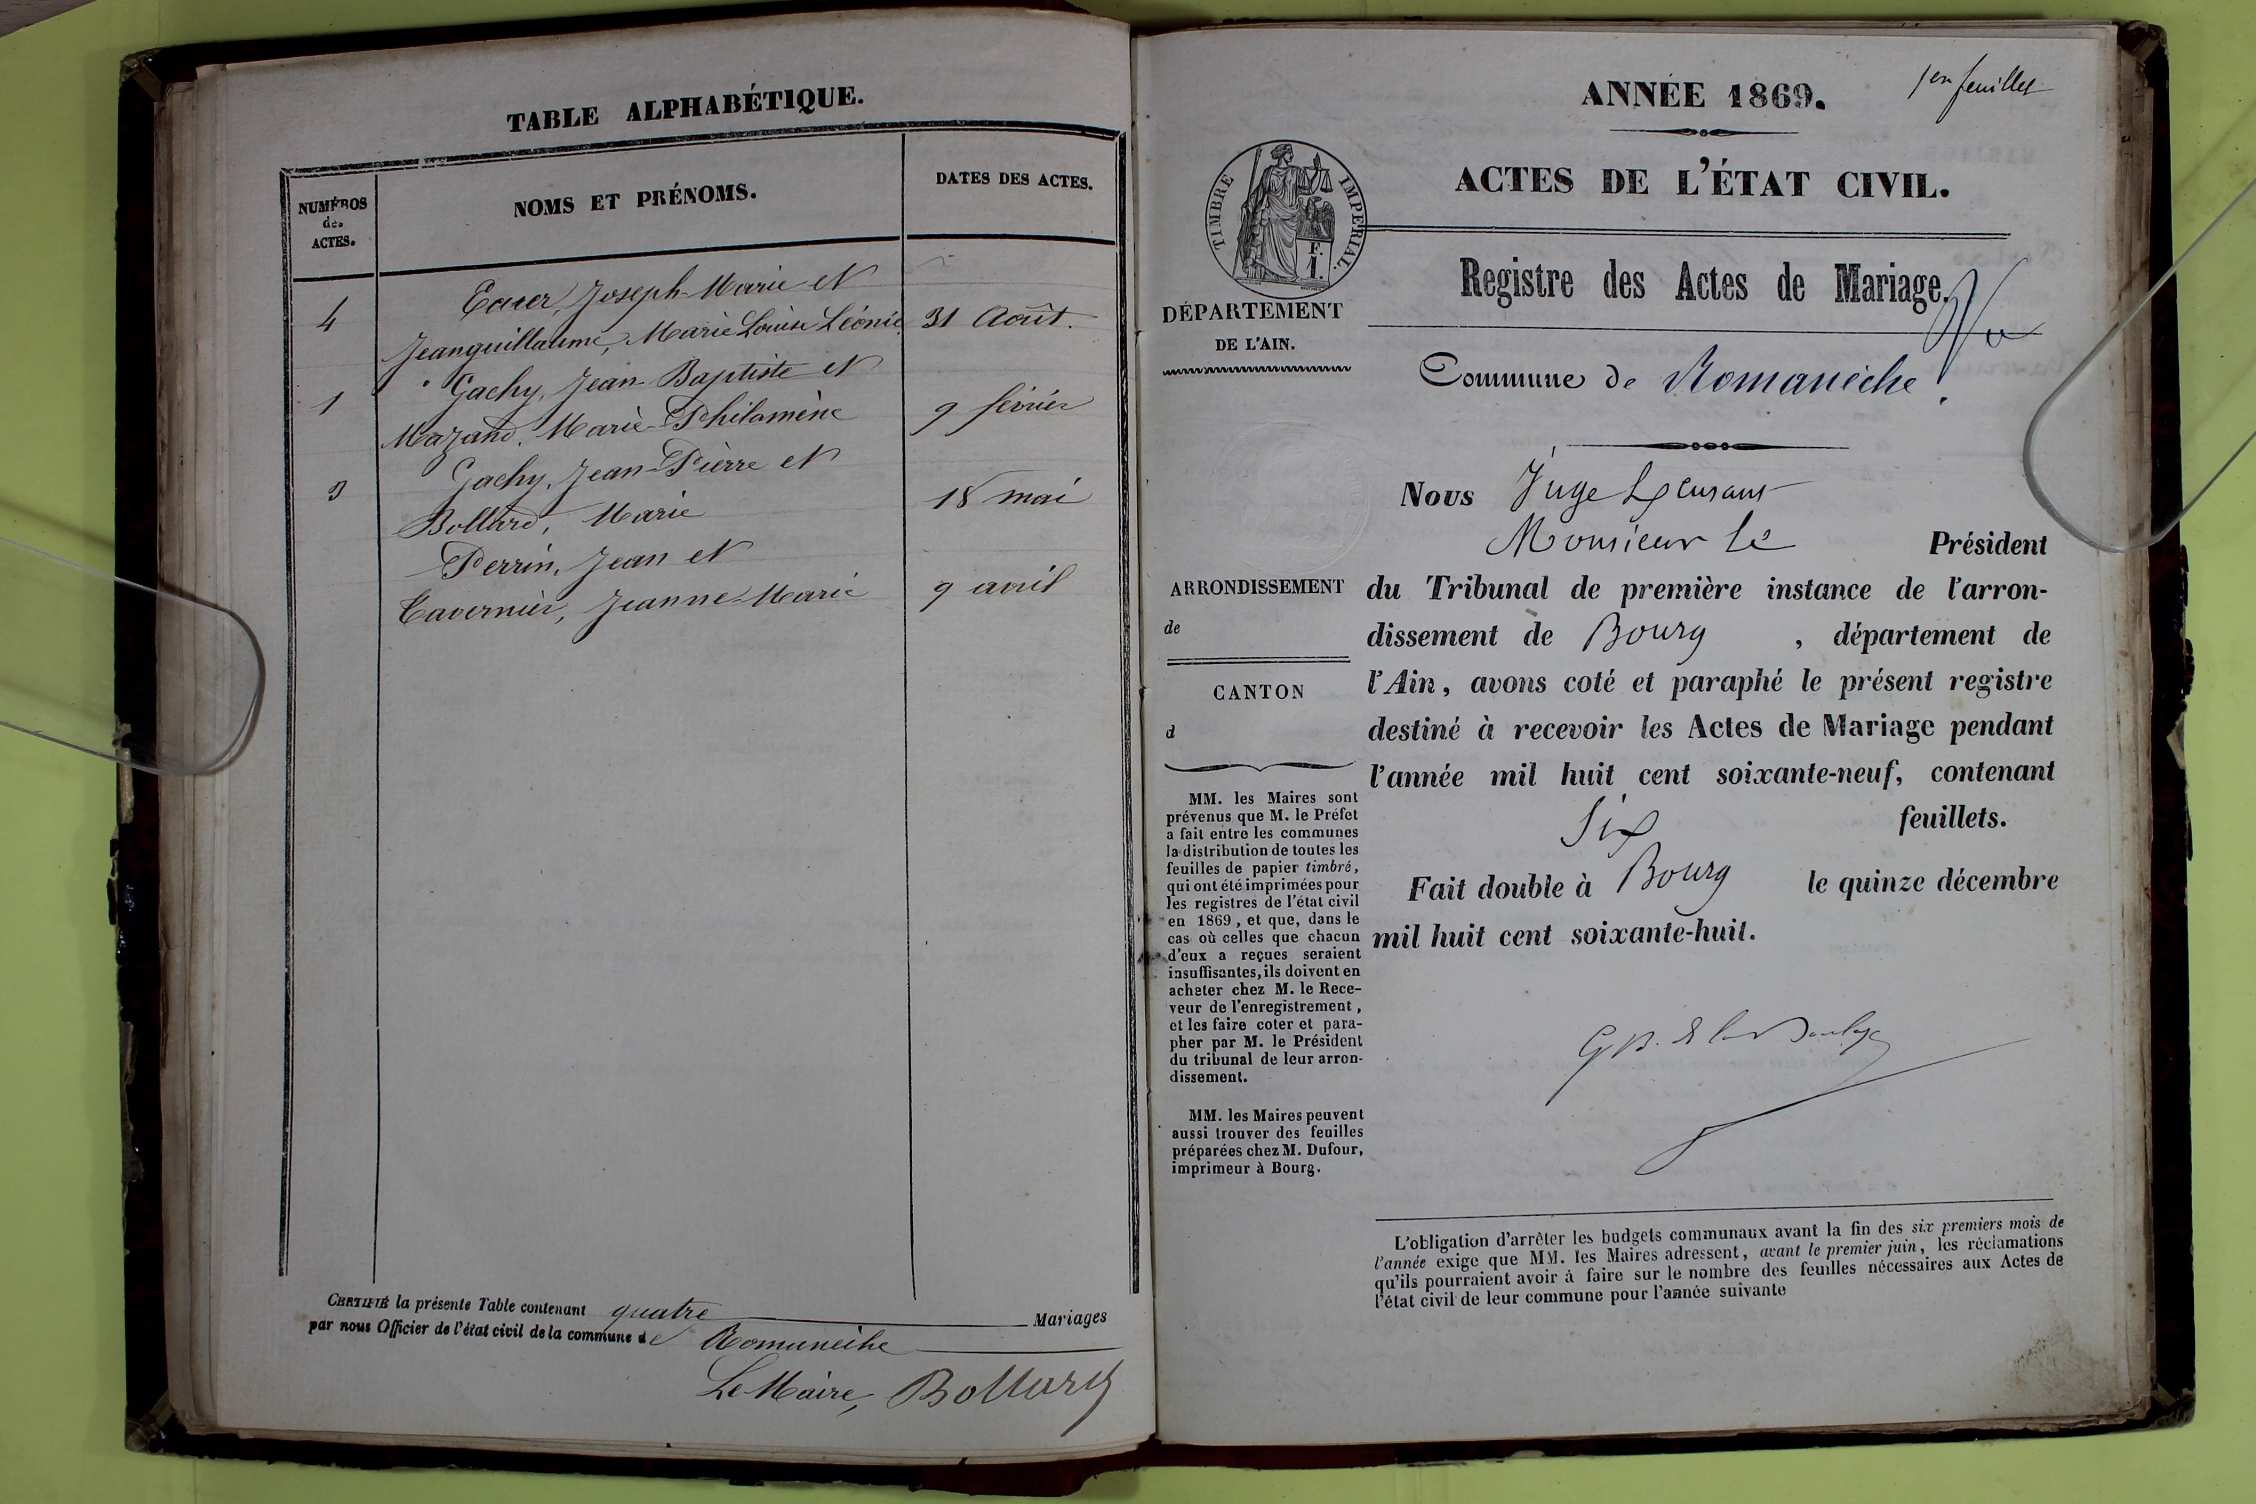 TABLE ALPHABÉTIQUE.
NUMÉROS
des
ACTES.
NOMS ET PRÉNOMS.
DATES DES ACTES.
Joseph-Marie et
4 Jeanguillaume, Marie Louise Léonie 31 Août.
Gachy, Jean-Baptiste et
1 Mazand, Marie-Philomène 9 février
Gachy, Jean-Pierre et
3 Bollard, Marie 18 mai
Perrin, Jean et
Tavernier, Jeanne-Marie 9 avril
CERTIFIÉ la présente Table contenant quatre Mariages
par nous Officier de l'état civil de la commune de Romanèche
Le Maire, Bollard
1er feuillet
ANNÉE 1869.
ACTES DE L'ÉTAT CIVIL.
TIMBRE IMPÉRIAL.
F.
1.
Registre des Actes de Mariage.
Vu
DÉPARTEMENT
DE L'AIN.
Commune de Romanèche.
Nous Juge
Monsieur le Président
ARRONDISSEMENT
de
CANTON
d
du Tribunal de première instance de l'arron-
dissement de Bourg, département de
l'Ain, avons coté et paraphé le présent registre
destiné à recevoir les Actes de Mariage pendant
l'année mil huit cent soixante-neuf, contenant
Six feuillets.
Fait double à Bourg le quinze décembre
mil huit cent soixante-huit.
MM. les Maires sont
prévenus que M. le Préfet
a fait entre les communes
la distribution de toutes les
feuilles de papier timbré,
qui ont été imprimées pour
les registres de l'état civil
en 1869, et que, dans le
cas où celles que chacun
d'eux a reçues seraient
insuffisantes, ils doivent en
acheter chez M. le Rece-
veur de l'enregistrement,
et les faire coter et para-
pher par M. le Président
du tribunal de leur arron-
dissement.
MM. les Maires peuvent
aussi trouver des feuilles
préparées chez M. Dufour,
imprimeur à Bourg.
L'obligation d'arrêter les budgets communaux avant la fin des six premiers mois de
l'année exige que MM. les Maires adressent, avant le premier juin, les réclamations
qu'ils pourraient avoir à faire sur le nombre des feuilles nécessaires aux Actes de
l'état civil de leur commune pour l'année suivante